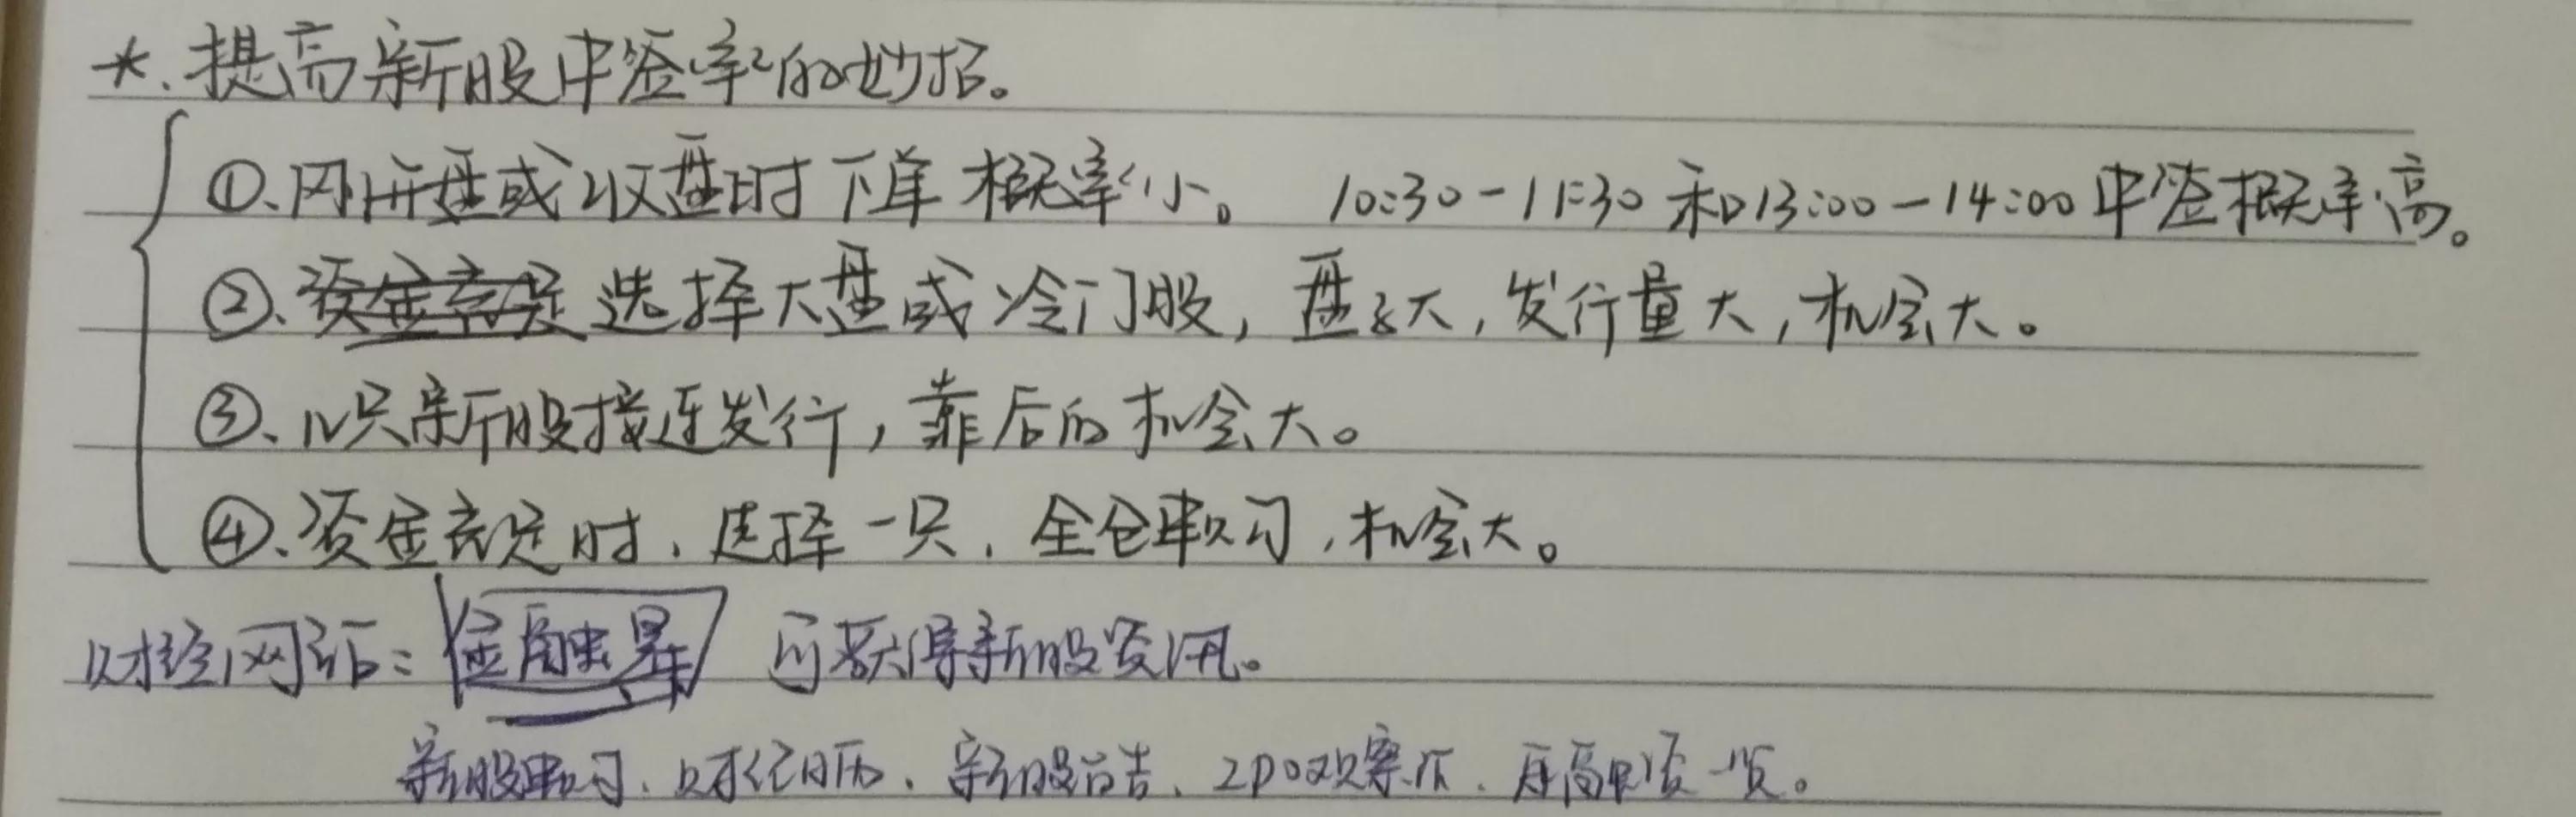 *.提高新股中签率的妙招。
①、刚开盘或收盘时下单概率小。 10:30-11:30和13:00-14:00中签概率高。
②、资金充足选择大盘或冷门股，盘子大，发行量大，机会大。
③、几只新股接连发行，靠后的机会大。
④、资金充足时，选择一只，全仓申购，机会大。
财经网站：金融界 可获得新股资讯。
新股申购、财经日历、新股预告、IPO观察、历届申购一览。